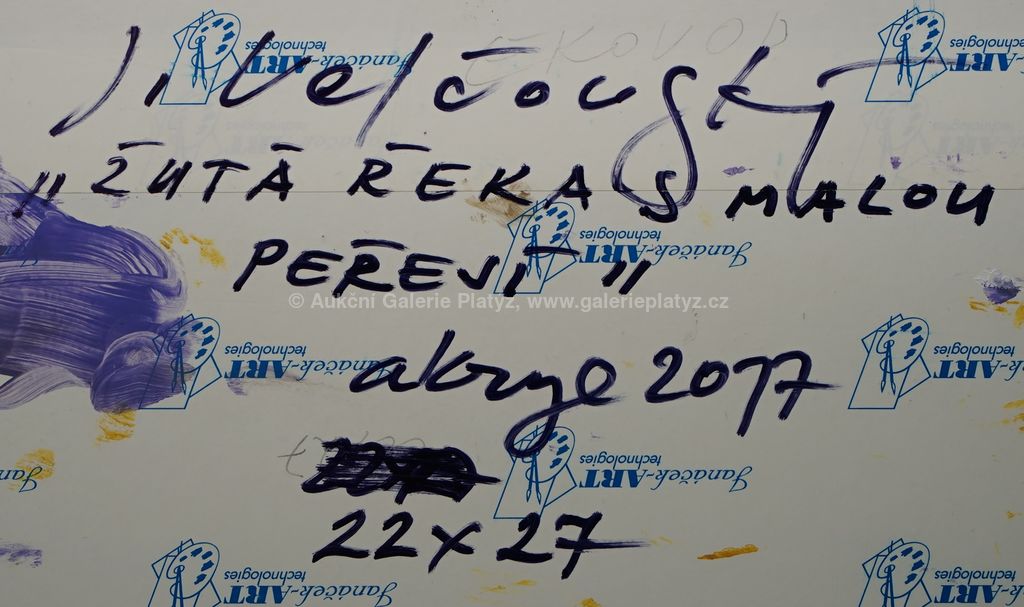 Ji. Velčovský
"ŽLUTÁ ŘEKA S MALOU
PEŘEJÍ"
© Aukční Galerie Platýz, www.galerieplatyz.cz
akryl 2017
22 x 27
Janáček-ART
technologies
Janáček-ART
technologies
Janáček-ART
technologies
Janáček-ART
technologies
Janáček-ART
technologies
Janáček-ART
technologies
Janáček-ART
technologies
Janáček-ART
technologies